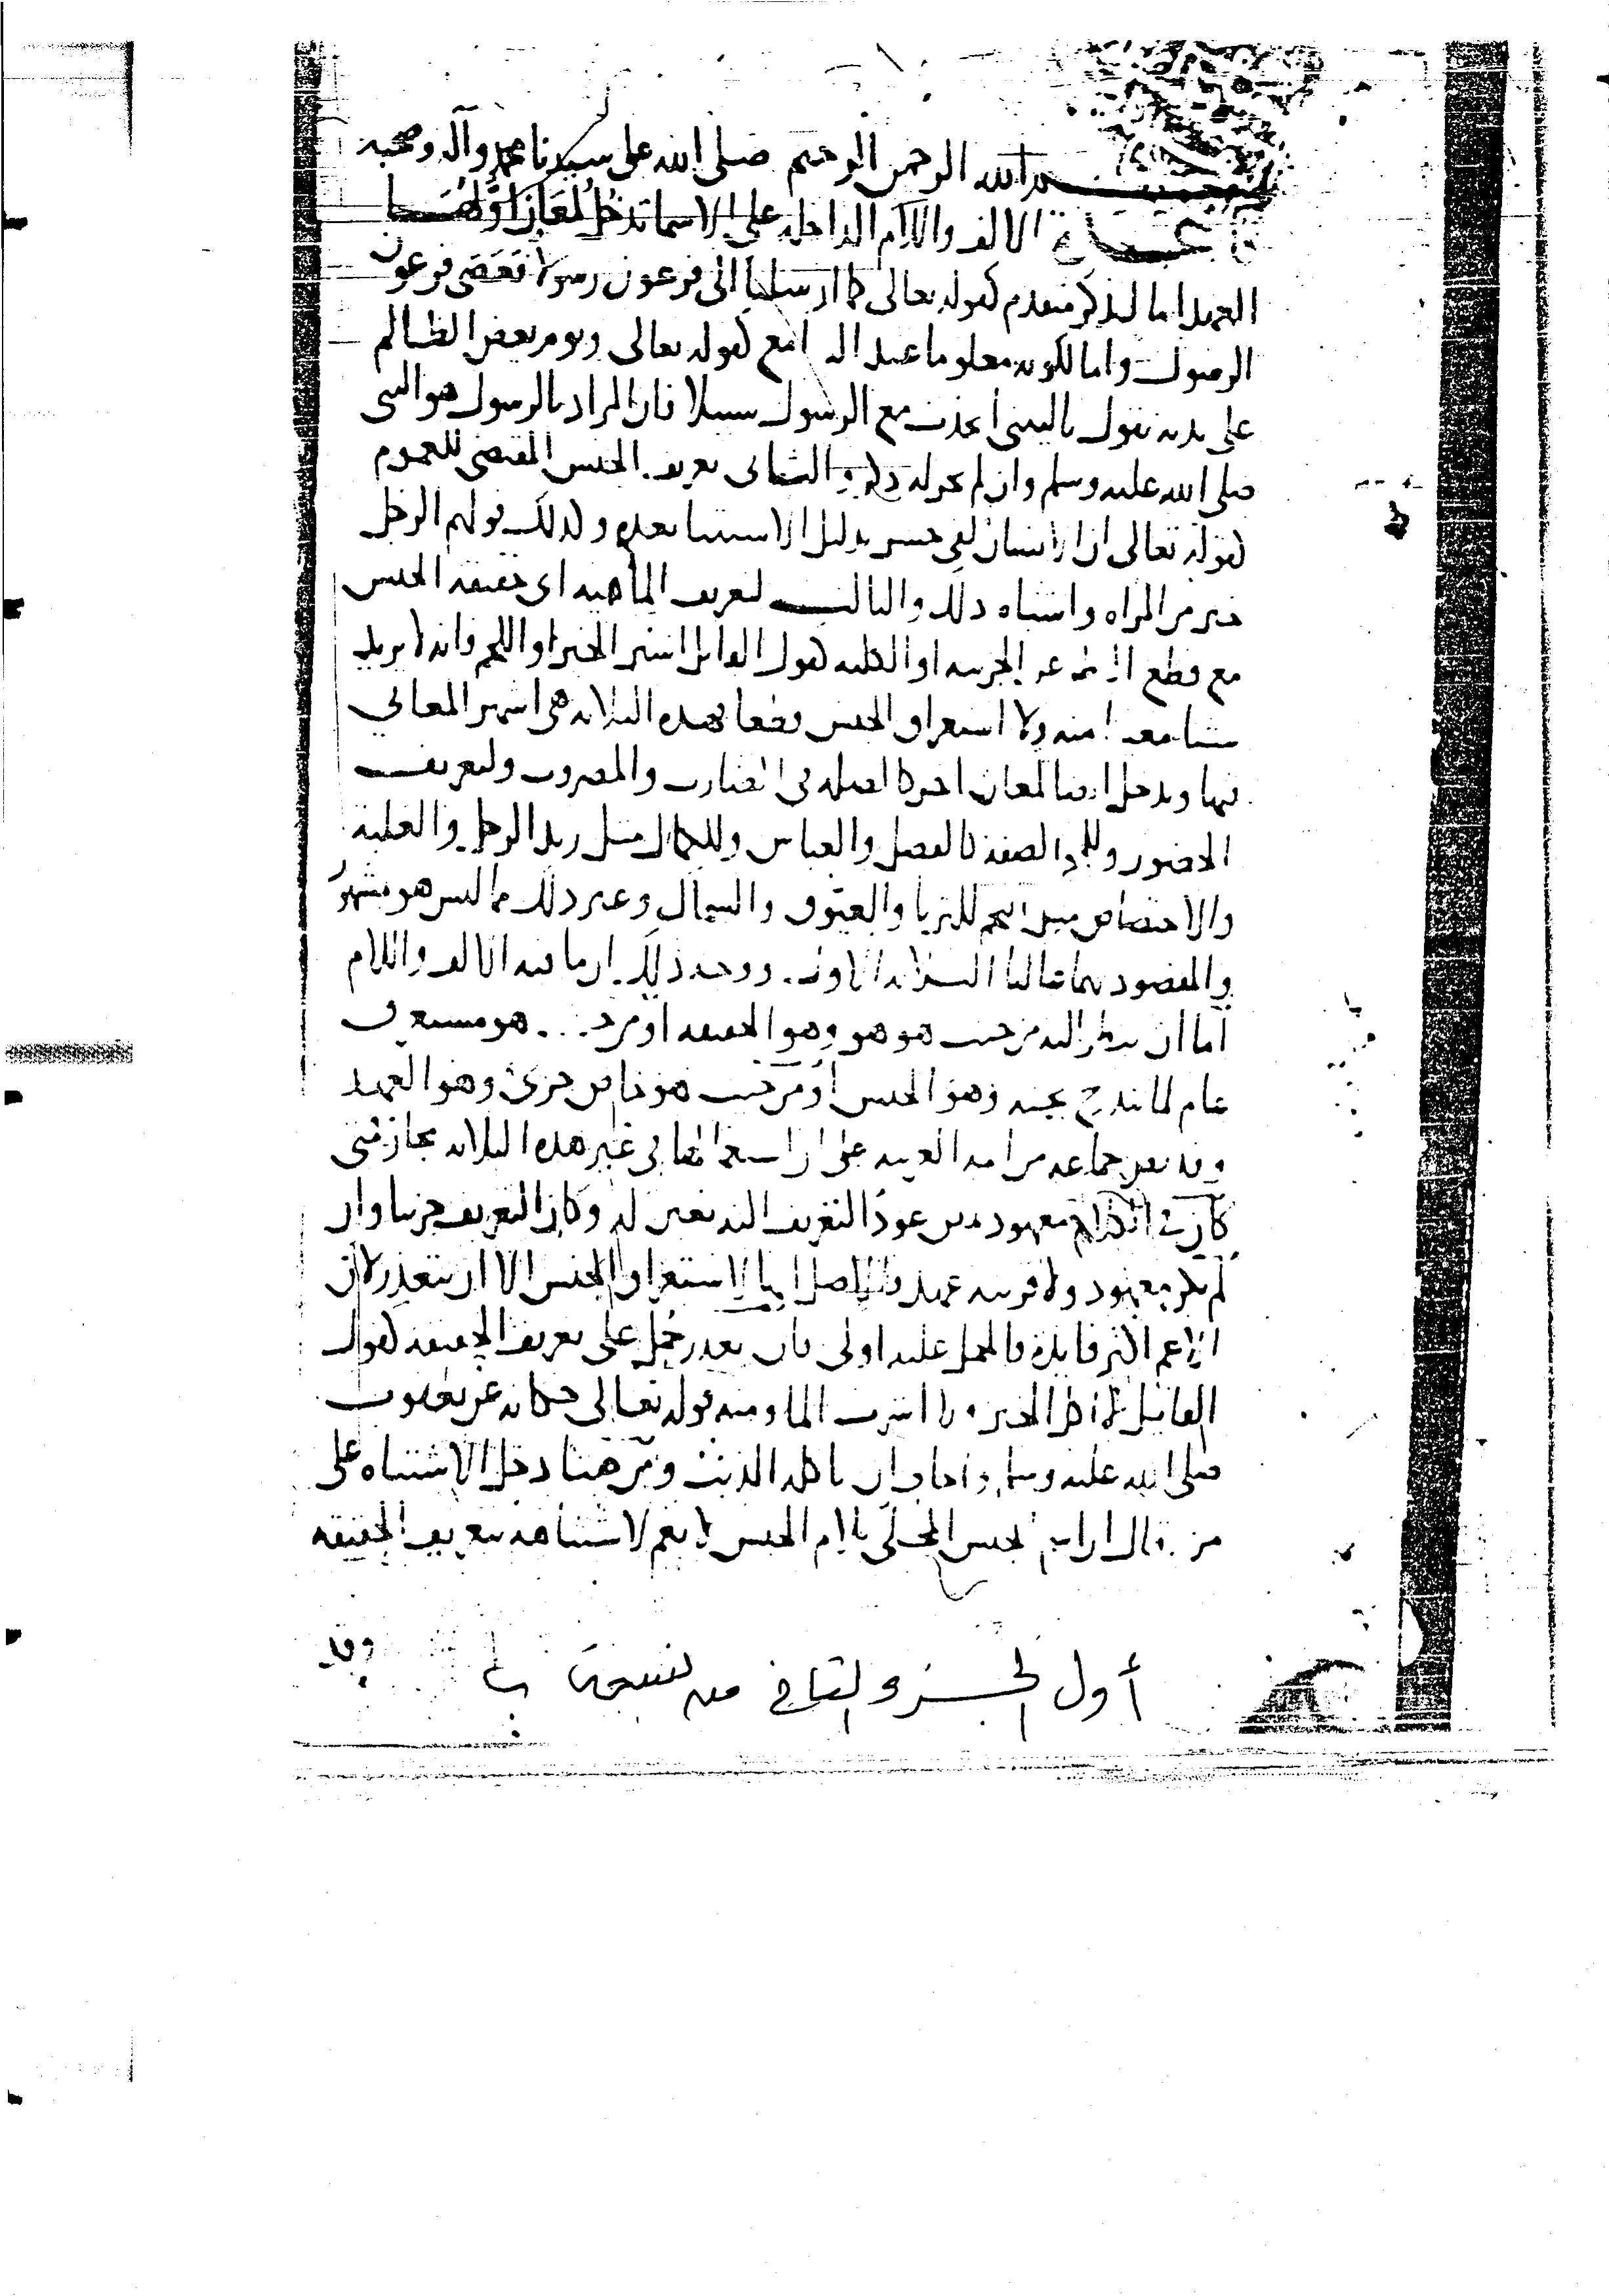 بسم الله الرحمن الرحيم صلى الله على سيدنا محمد وآله وصحبه
الالف واللام الداخلة على الاسما تدخل لمعان اولها
العهد اما لذكر متقدم كقوله تعالى كما ارسلنا الى فرعون رسولا فعصى فرعون
الرسول واما لكونه معلوما عند السامع كقوله تعالى ويوم يعض الظالم
على يديه يقول يا ليتني اتخذت مع الرسول سبيلا فان المراد بالرسول هو النبي
صلى الله عليه وسلم وان لم يجر له ذكر والثاني تعريف الجنس المقتضي للعموم
كقوله تعالى ان الانسان لفي خسر بدليل الاستثنا بعده وكذلك قولهم الرجل
خير من المراه واشباه ذلك والثالث لتعريف الماهيه اي حقيقه الجنس
مع قطع النظر عن الجزييه او الكليه كقول القايل اشتر الخبز او اللحم فانه لا يريد
شيا معينا منه ولا استغراق الجنس قطعا فهذه الثلاثه هي اشهر المعاني
فيها وتدخل ايضا لمعان اخر كالصله في الضارب والمضروب ولتعريف
الحضور وللمح الصفة كالفضل والعباس وللكمال مثل زيد الرجل والغلبة
والاختصاص مثل النجم للثريا والعيوق والسماك وغير ذلك مما ليس هو مشهور
والمقصود بها غالبا الثلاثه الاول ووجه ذلك ان ما فيه الالف واللام
اما ان ينظر اليه من حيث هو هو وهو الحقيقه او من حيث هو مستغرق
عام لما يندرج تحته وهو الجنس او من حيث هو خاص جزئ وهو العهد
وقد نص جماعه من ايمه العربيه على ان استعمالها في غير هذه الثلاثه مجاز فمتى
كان في الكلام معهود يمكن عود التعريف اليه تعين له وكان التعريف جزييا وان
لم يكن معهود ولا قرينه عهد فالاصل انها لاستغراق الجنس الا ان يتعذر لان
الاعم اكثر فايدة فالحمل عليه اولى فان تعذر حمل على تعريف الحقيقه كقول
القائل لا اكل الخبز ولا اشرب الما ومنه قوله تعالى حكايه عن يعقوب
صلى الله عليه وسلم واخاف ان ياكله الذئب ومن هنا دخل الاشتباه على
من قال ان اسم الجنس المحلى بلام الجنس لا يعم لاشتباهه بتعريف الحقيقه
وقد
أول الجزء الثاني من نسخة ب